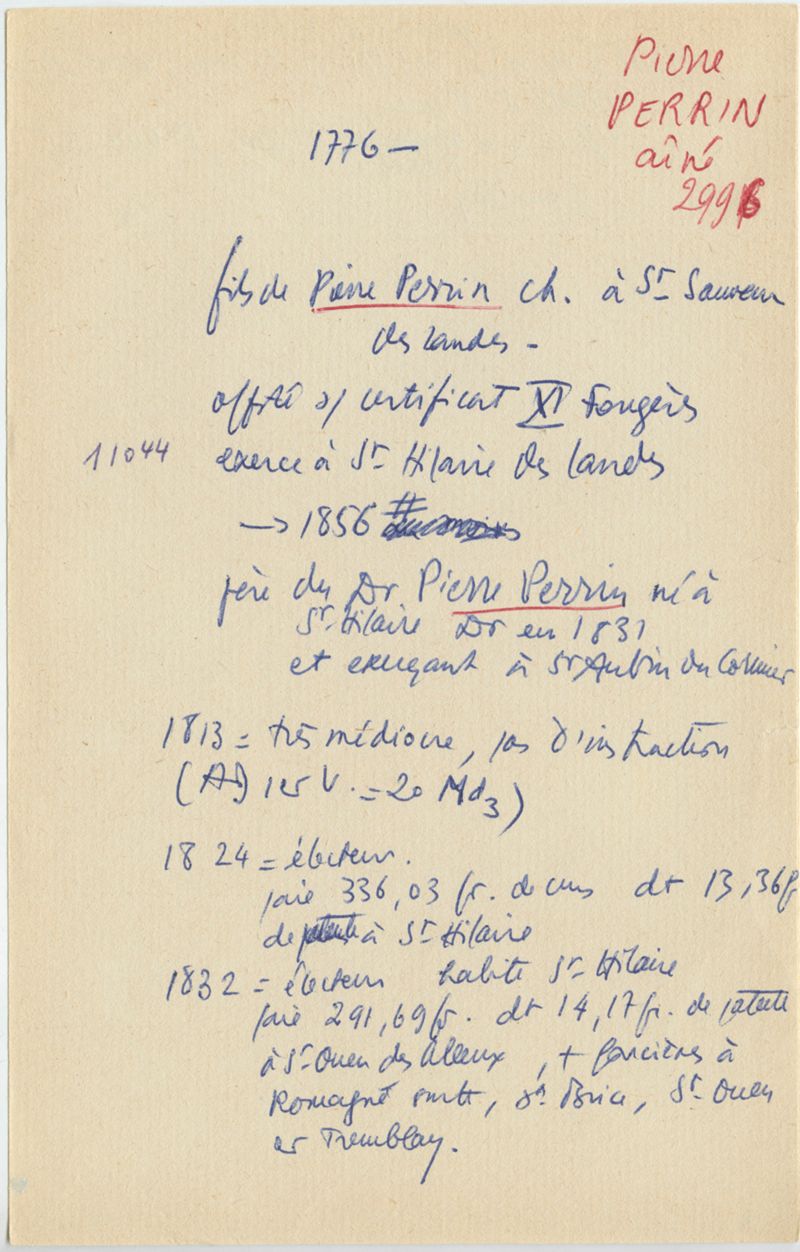 Pierre
PERRIN
aîné
299
1776 —
fils de Pierre Perrin ch. à St Sauveur
des Landes -
off. certificat XI Fougères
11044 exerce à St Hilaire des Landes
→ 1856
père du Dr Pierre Perrin né à
St Hilaire Dr en 1831
et exerçant à St Aubin du Cormier
1813 = très médiocre, pas d'instruction
(AD V. = 20 Md3)
1824 = électeur.
paie 336,03 fr. de cens dt 13,36 fr
de patente à St Hilaire
1832 = électeur habite St Hilaire
paie 291,69 fr. dt 14,17 fr. de patente
à St Ouen des Alleux, + foncières à
Romagné, St Brice, St Ouen
et Tremblay.